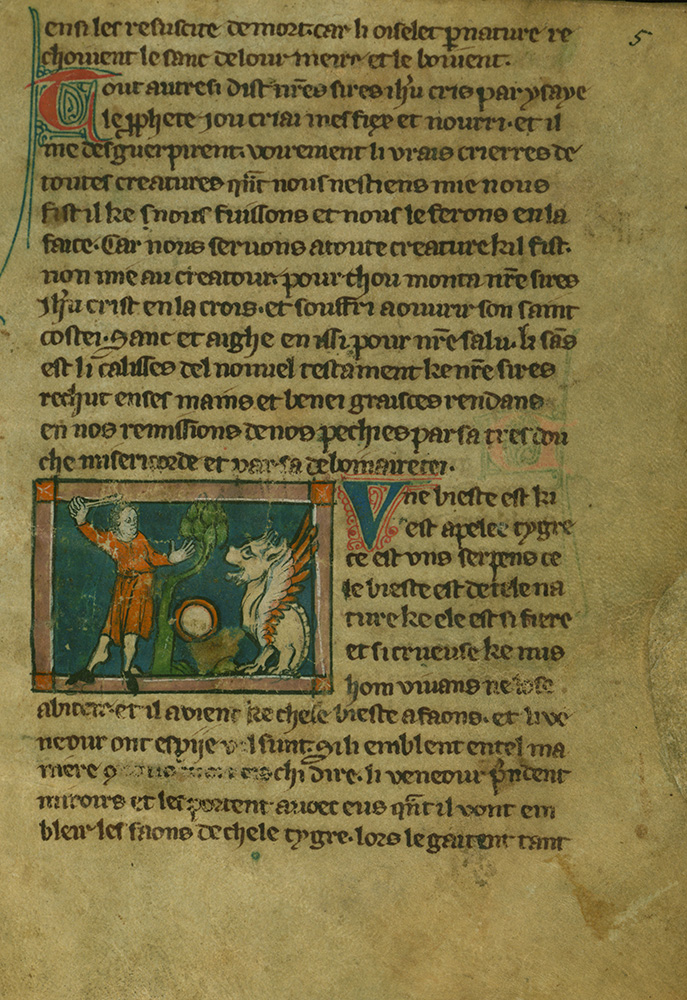 ensi les resuscite de mort. car li oiselet p nature re
choivent le sanc de lour meire et le boivent.
Tout autresi dist nr̄es sires ih̄u cris par ysaye
le pphete jou criai mes fiex et nourri. et il
me desguerpirent. voirement li vrais crierres de
toutes creatures qn̄t nous nestiens mie nous
fist il ke snous fuissons et nous le ferons en la
face. Car nous servons a toute creature kil fist.
non mie au creatour. pour chou monta nr̄e sires
ih̄u crist en la crois. et souffri a ouvrir son saint
costei. Sanc et aighe en issi pour nr̄e salu. li sās
est li calisses del nouvel testament ke nr̄e sires
rechut en ses mains et benei graisces rendans
en nos remissions de nos pechies par sa tres dou
che misericorde et par sa debonairetei.
5
Vne bieste est ki
est apelee tygre
ce est uns serpens ce
le bieste est de tele na
ture ke ele est si fiere
et si crueuse ke nus
hom vivans ne lose
abiter. et il avient ke chele bieste a faons. et li ve
neour ont espije u il sunt. si li emblent en tel ma
niere chi dire. li veneour p̄ndent
miroirs et les portent avoec eus qn̄t il vont em
bleir les faons de chele tygre. lors le gaitent tant